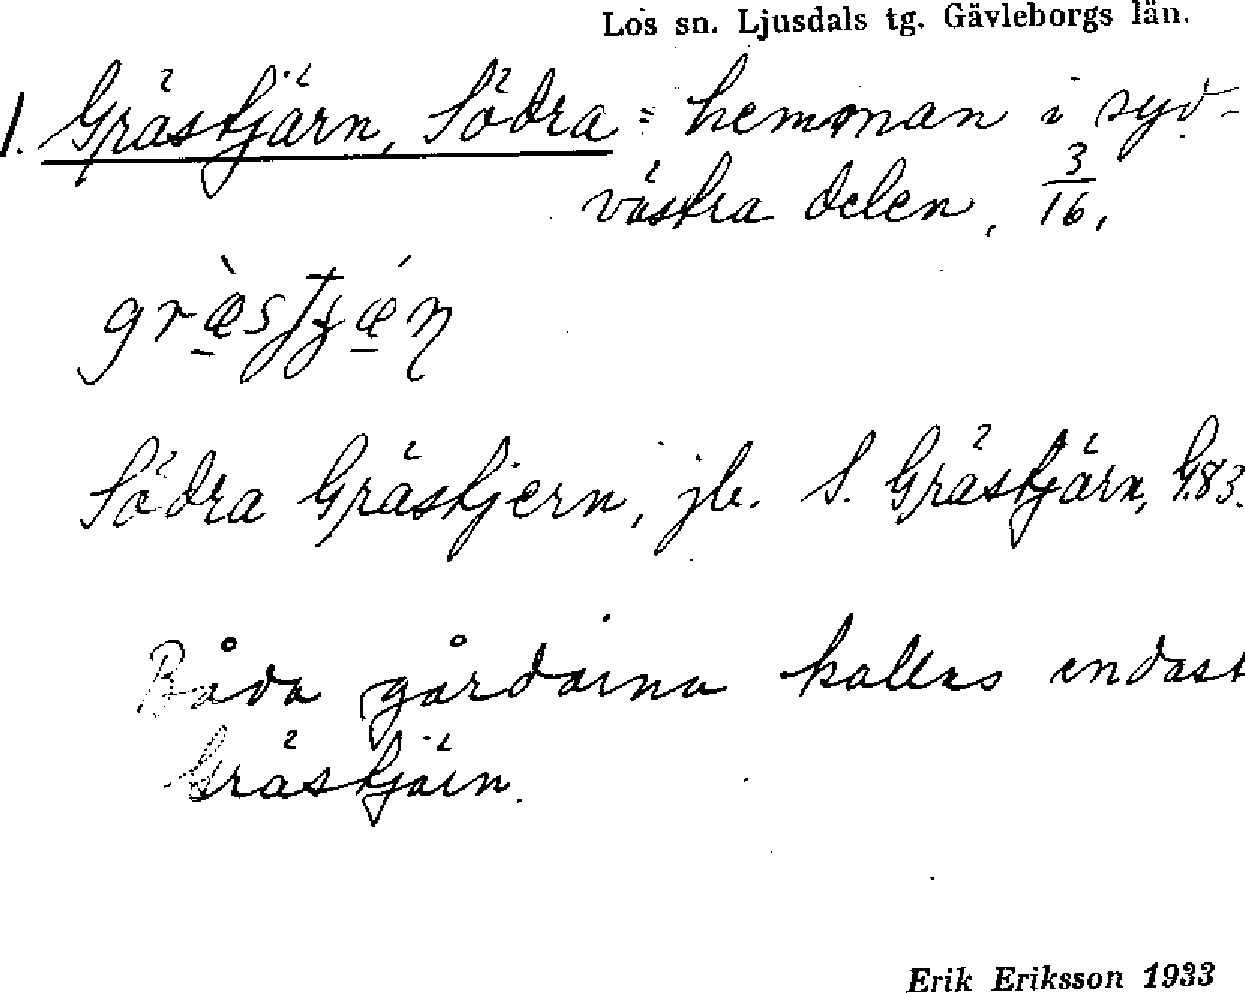 Los sn. Ljusdals tg. Gävleborgs län.
1. Grästjärn, Södra = hemman i syd-
västra delen, 3/16,
Södra Grästjern, jb. S. Grästjärn, G.83.
Båda gårdarna kallas endast
Grästjärn.
Erik Eriksson 1933